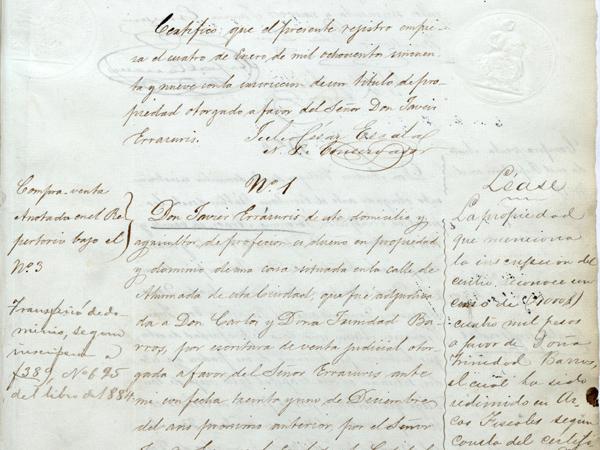 Certifico que el presente registro empie-
za el cuatro de Enero de mil ochocento cincuen-
ta y nueve con la inscricion de un título de pro-
piedad otorgado a favor del Señor Don Javier
Errazuris. Julio Cesar Escala
N. P. Conservador
Nº 1
Compra-venta
Anotada en el Re-
pertorio bajo el
Nº 3
Transfirió do-
minio, segun
inscripn a
f 389, Nº 695
del libro de 1884
Don Javier Errázuris de este domicilio y
agricultor de profesion es dueno en propiedad
y dominio de una casa situada en la calle de
Ahumada de esta Ciudad, que fué adjudica-
da a Don Carlos y Dona Trinidad Ba-
rros, por escritura de venta judicial otor-
gada a favor del Señor Errazuris ante
mi con fecha treinta y uno de Diciembre
del ano proximo anterior, por el Señor
Léase
La propiedad
que menciona
la inscripcion del
centro, reconoce un
censo de
cuatro mil pesos
a favor de Dona
Trinidad Barros,
el cual ha sido
redimido en Ar-
cas Fiscales segun
consta del certifi